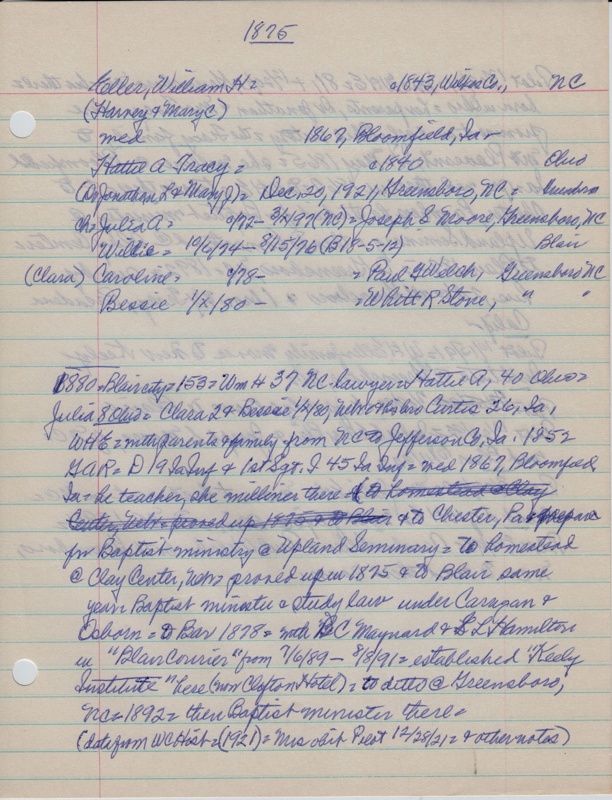 1875
Eller, William H = c1843, Wilkes Co., NC
(Harvey & Mary C)
med 1867, Bloomfield, Ia =
Hattie A Tracy = c1840 Ohio
(Dr Jonathan L & Mary J) = Dec. 20, 1921, Greensboro, NC =
Ch = Julia A = c/72 - 3/2/97 (NC) = Joseph S Moore, Greensboro, NC
Willie = 10/6/74 - 8/15/76 (B 18-5-12) Blair
(Clara) Caroline = c/78 - = Paul G Welch, Greensboro NC
Bessie 1/x/80 - = Whitt R Stone, " "
1880 = Blair city = 153 = Wm H 37 NC - lawyer = Hattie A, 40 Ohio =
Julia 8 Ohio = Clara 2 & Bessie 1/x/80, Nebr = bro Curtis 26, Ia,
WHE = with parents & family from NC to Jefferson Co, Ia. 1852
GAR = D 19 Ia Inf & 1st Sgt. I 45 Ia Inf = med 1867, Bloomfied,
Ia = he teacher, she milliner there = & to Chester, Pa & prepare
for Baptist ministry @ Upland Seminary = to homestead
@ Clay Center, Nebr = proved up in 1875 & to Blair same
year = Baptist minister & study law under Caragan &
Osborn = to Bar 1878 = with BC Maynard & L Hamilton
in "Blair Courier" from 7/6/89 - 8/8/91 = established "Keely
Institute" here (now Clifton Hotel) = to ditto @ Greensboro,
NC = 1892 = then Baptist minister there =
(data from WC Hist = (1921) = Mrs obit Pilot 12/28/21 = & other notes)